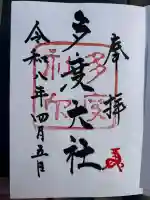 奉拝
多度大社
令和八年四月五日